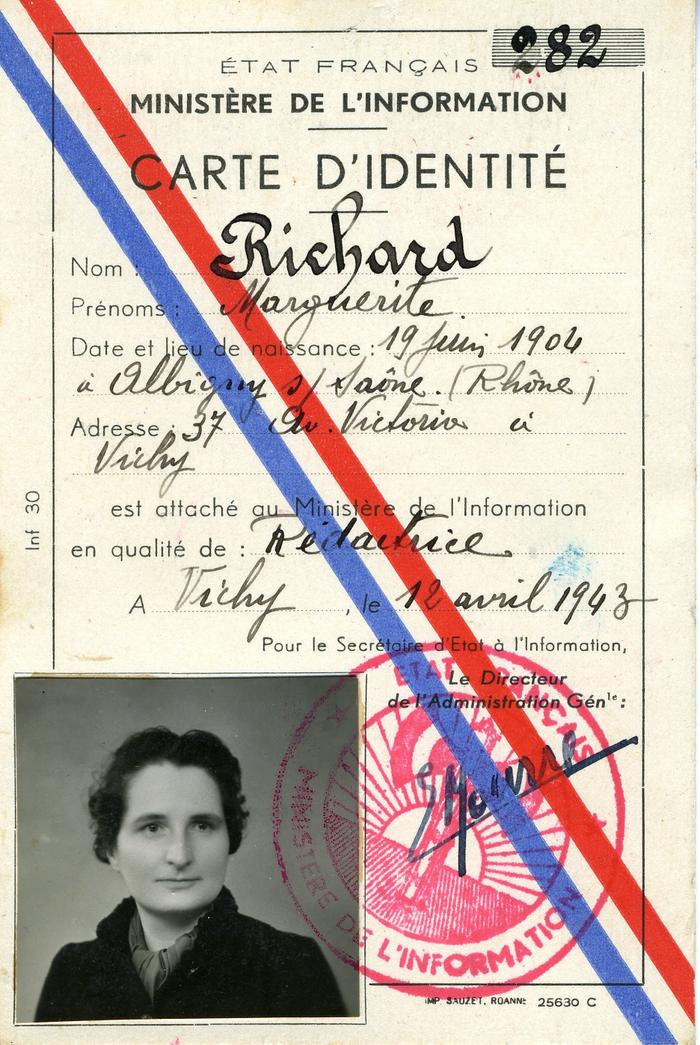 282
ÉTAT FRANÇAIS
MINISTÈRE DE L'INFORMATION
CARTE D'IDENTITÉ
Nom : Richard
Prénoms : Marguerite
Date et lieu de naissance : 19 juin 1904
à Albigny s/ Saône. (Rhône)
Adresse : 37 Av. Victoria à
Vichy
est attaché au Ministère de l'Information
en qualité de : Rédactrice
A Vichy, le 12 avril 1943
Pour le Secrétaire d'Etat à l'Information,
Le Directeur
de l'Administration Génle :
ETAT FRANÇAIS
MINISTERE DE L'INFORMATION
Inf 30
IMP. SAUZET, ROANNE 25630 C